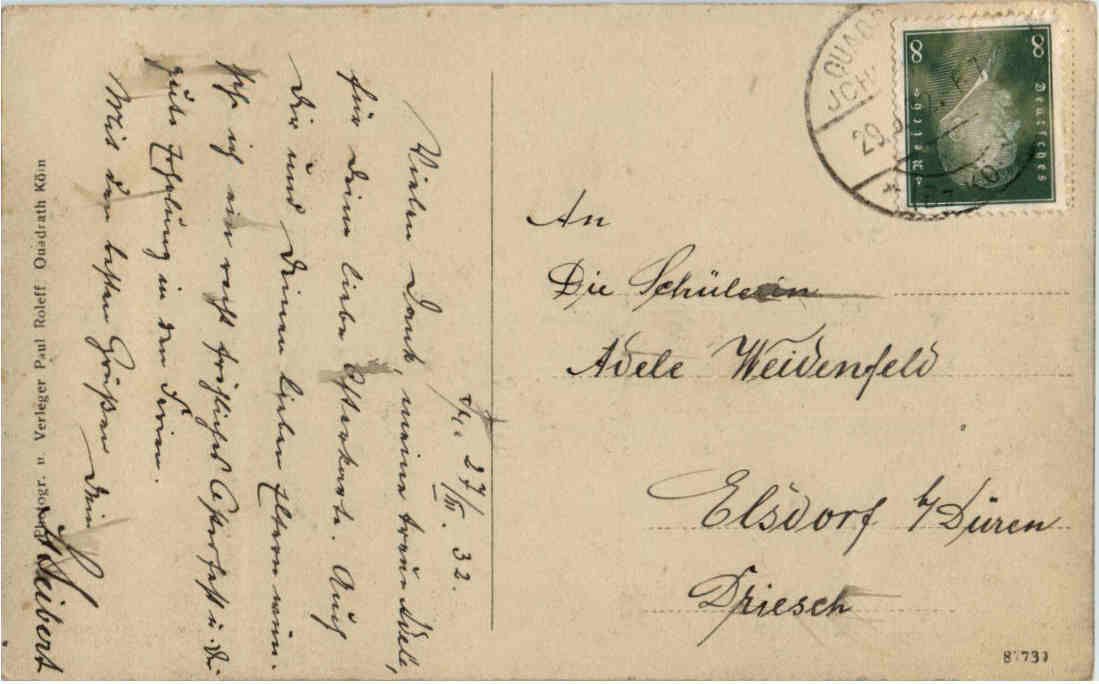 27/III. 32.
Vielen Dank, meine treue Adele,
für Deine liebe Osterkarte. Auch
Dir und Deinen lieben Eltern wün-
sche ich ein recht fröhliches Osterfest u. Dir
gute Erholung in den Ferien.
Mit den besten Grüßen Dein
Seibert
Photogr. u. Verleger Paul Roleff Quadrath Köln
An
Die Schülerin
Adele Weidenfeld
Elsdorf b/Düren
Driesch
8 8
Deutsches
Reich
QUAD
JCH
29.